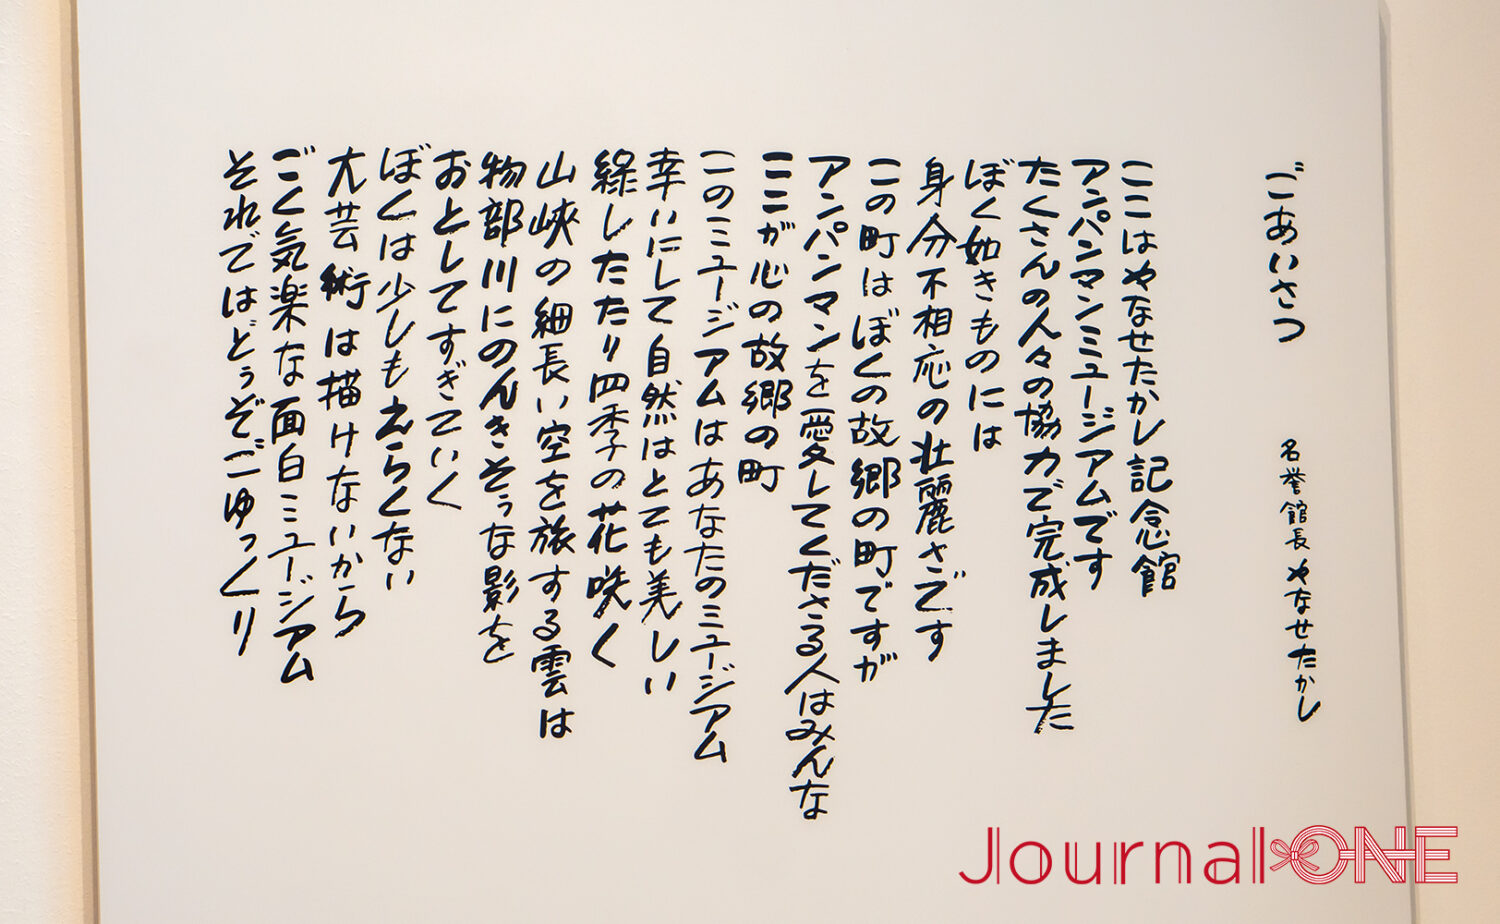 ごあいさつ
名誉館長 やなせたかし
ここはやなせたかし記念館
アンパンマンミュージアムです
たくさんの人々の協力で完成しました
ぼく如きものには
身分不相応の壮麗さです
この町はぼくの故郷の町ですが
アンパンマンを愛してくださる人はみんな
ここが心の故郷の町
このミュージアムはあなたのミュージアム
幸いにして自然はとても美しい
緑したたり四季の花咲く
山峡の細長い空を旅する雲は
物部川にのんきそうな影を
おとしてすぎていく
ぼくは少しもえらくない
大芸術は描けないから
ごく気楽な面白ミュージアム
それではどうぞごゆっくり
Journal ONE